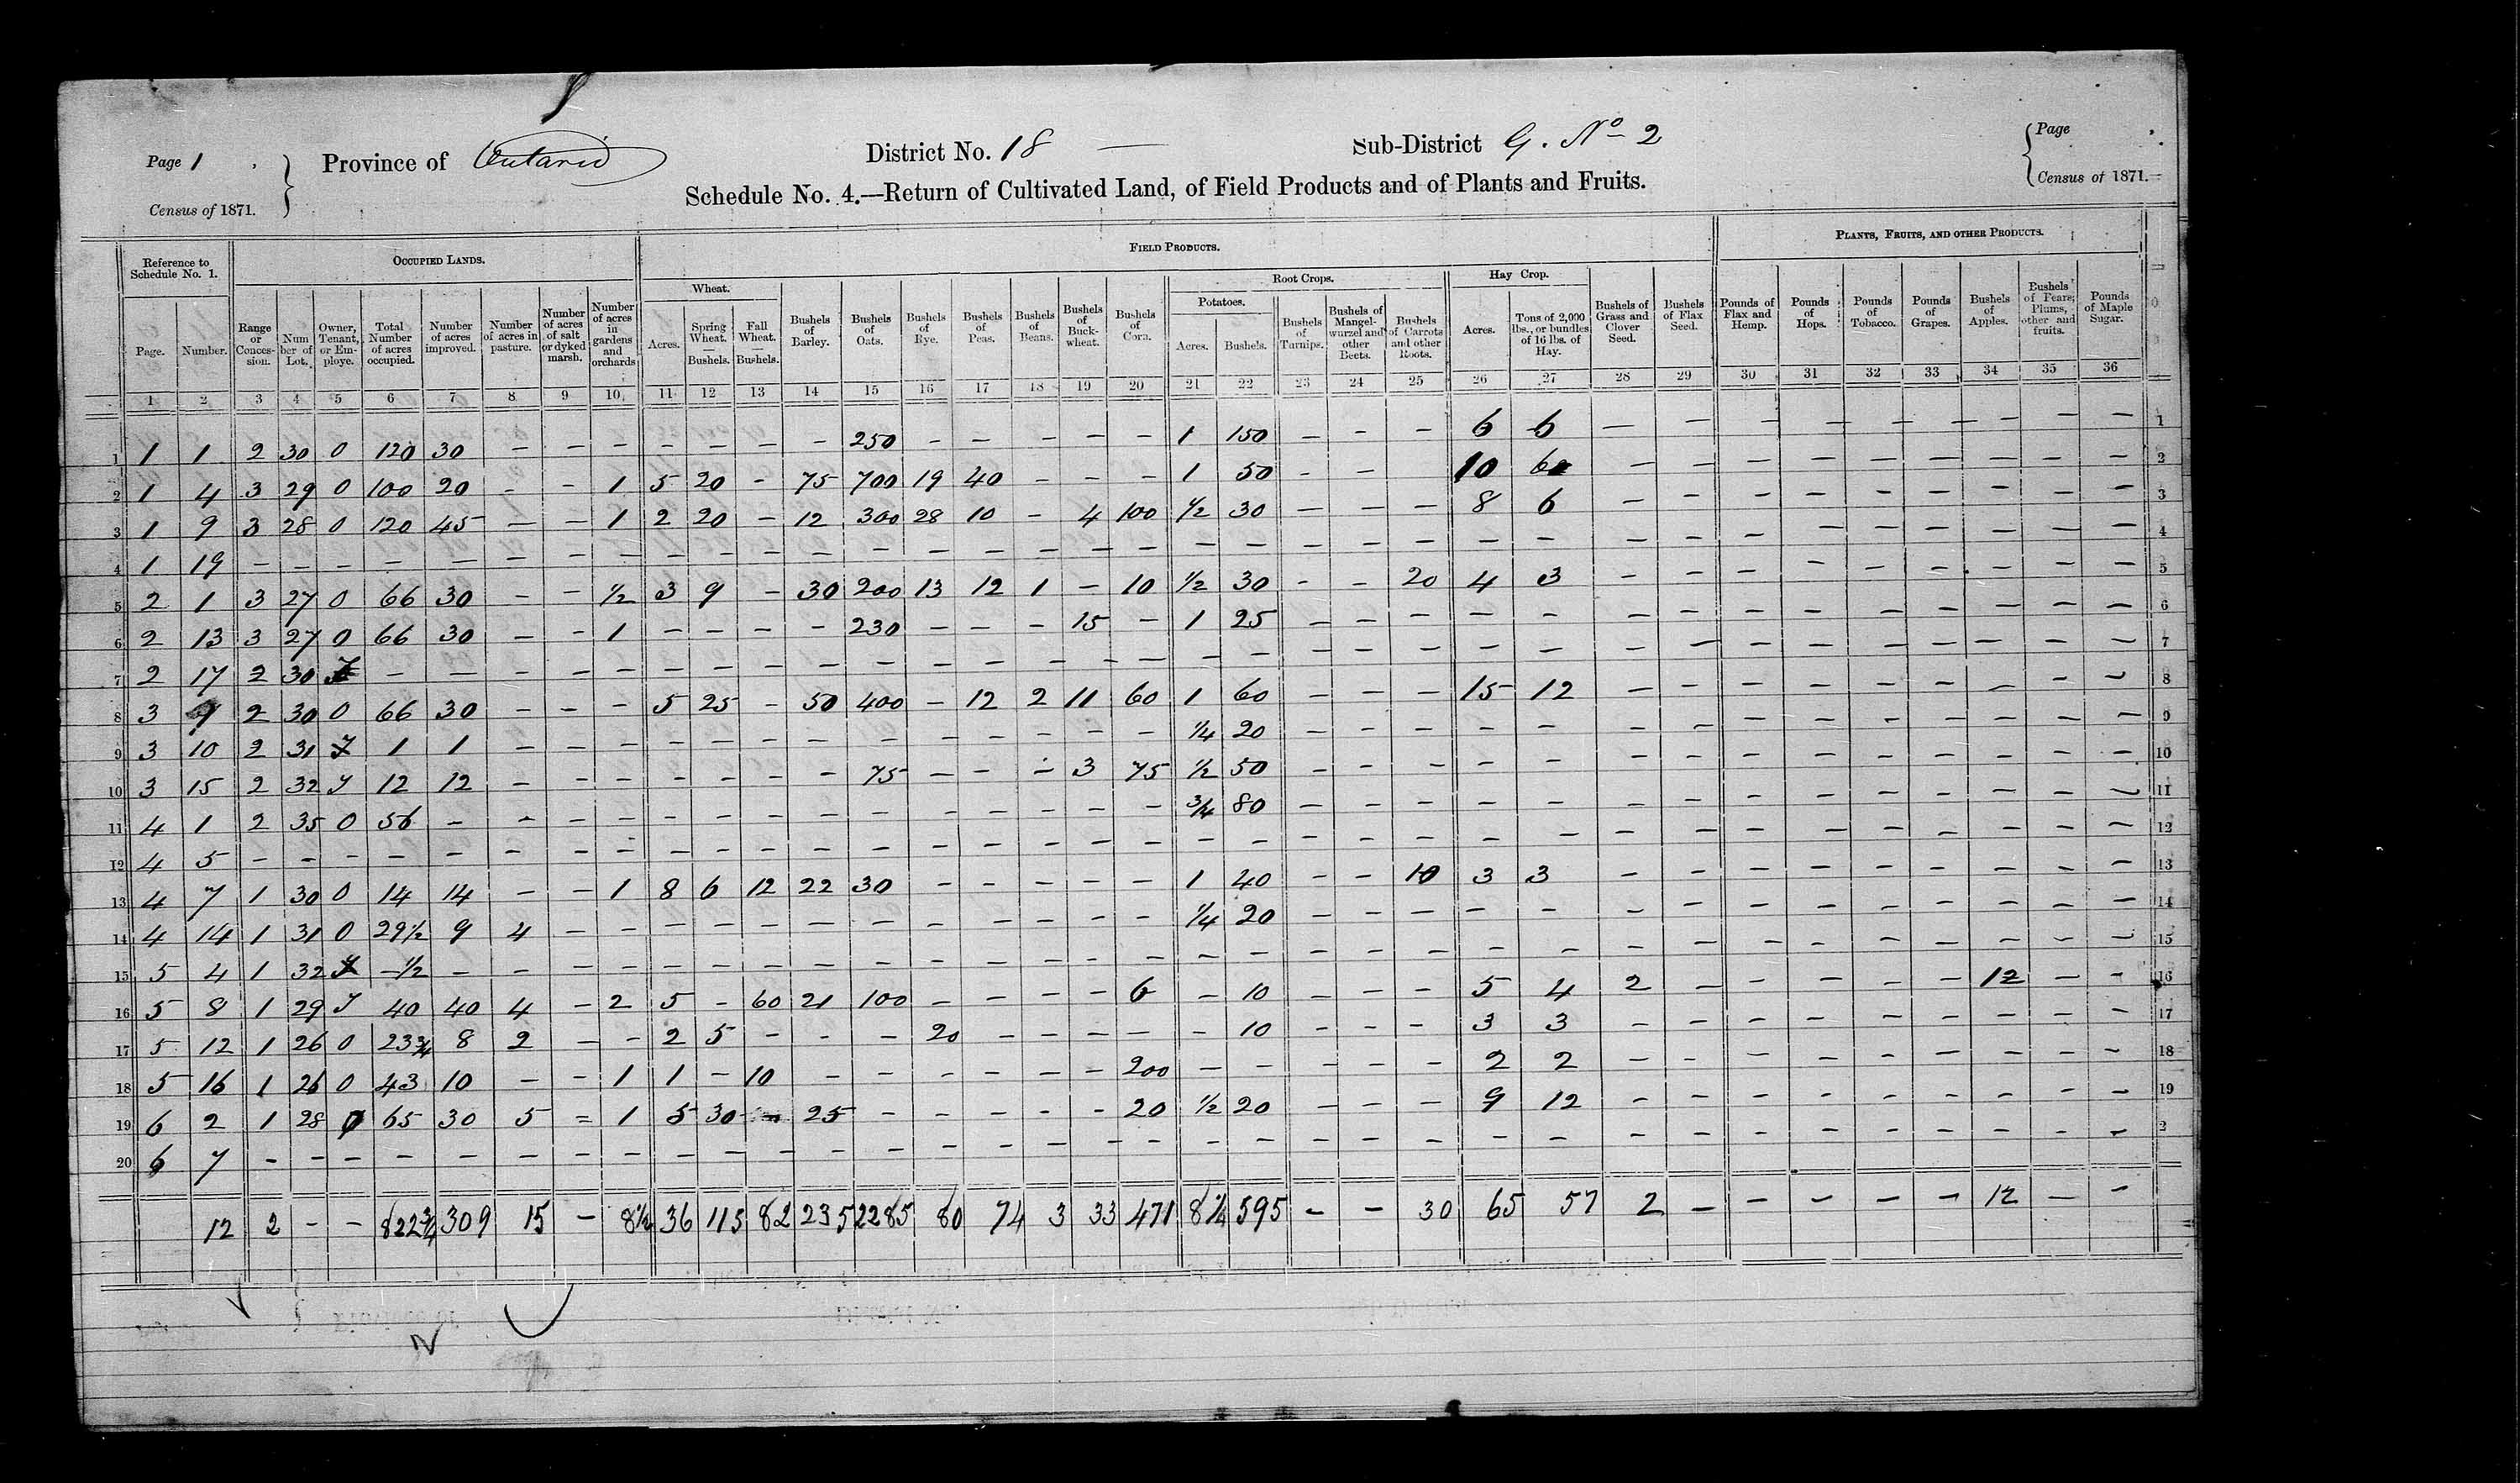 Page 1
Census of 1871.
Province of Ontario
District No. 18 —
Sub-District G. No 2
Page
Census of 1871.
Schedule No. 4.—Return of Cultivated Land, of Field Products and of Plants and Fruits.
Reference to Schedule No. 1.
OCCUPIED LANDS.
FIELD PRODUCTS.
PLANTS, FRUITS, AND OTHER PRODUCTS.
Wheat.
Root Crops.
Potatoes.
Hay Crop.
Page. Number. Range or Conces- sion. Num ber of Lot. Owner, Tenant, or Em- ploye. Total Number of acres occupied. Number of acres improved. Number of acres in pasture. Number of acres of salt or dyked marsh. Number of acres in gardens and orchards Acres. Spring Wheat. — Bushels. Fall Wheat. — Bushels. Bushels of Barley. Bushels of Oats. Bushels of Rye. Bushels of Peas. Bushels of Beans. Bushels of Buck- wheat. Bushels of Corn. Acres. Bushels. Bushels of Turnips. Bushels of Mangel- wurzel and other Beets. Bushels of Carrots and other Roots. Acres. Tons of 2,000 lbs., or bundles of 16 lbs. of Hay. Bushels of Grass and Clover Seed. Bushels of Flax Seed. Pounds of Flax and Hemp. Pounds of Hops. Pounds of Tobacco. Pounds of Grapes. Bushels of Apples. Bushels of Pears, Plums, other and fruits. Pounds of Maple Sugar.
1 2 3 4 5 6 7 8 9 10 11 12 13 14 15 16 17 18 19 20 21 22 23 24 25 26 27 28 29 30 31 32 33 34 35 36
1 1 1 2 30 0 120 30 — — — — — — — 250 — — — — — 1 150 — — — 6 6 — — — — — — — — — 1
2 1 4 3 29 0 100 20 — — 1 5 20 — 75 700 19 40 — — — 1 50 — — 10 — — — — — — — — — 2
3 1 9 3 28 0 120 45 — — 1 2 20 — 12 300 28 10 — 4 100 ½ 30 — — — 8 6 — — — — — — — — — 3
4 1 19 — — — — — — — — — — — — — — — — — — — — — — — — — — — — — — — — — — 4
5 2 1 3 27 0 66 30 — — ½ 3 9 — 30 200 13 12 1 — 10 ½ 30 — — 20 4 3 — — — — — — — — — 5
6 2 13 3 27 0 66 30 — — 1 — — — — 230 — — — 15 — 1 25 — — — — — — — — — — — — — — 6
7 2 17 2 30 — — — — — — — — — — — — — — — — — — — — — — — — — — — — — — — 7
8 3 2 30 0 66 30 — — — 5 25 — 50 400 — 12 2 11 60 1 60 — — — 15 12 — — — — — — — — — 8
9 3 10 2 31 1 1 — — — — — — — — — — — — — ¼ 20 — — — — — — — — — — — — — — 9
10 3 15 2 32 12 12 — — — — — — — 75 — — — 3 75 ½ 50 — — — — — — — — — — — — — — 10
11 4 1 2 35 0 56 — — — — — — — — — — — — — — ¾ 80 — — — — — — — — — — — — — — 11
12 4 5 — — — — — — — — — — — — — — — — — — — — — — — — — — — — — — — — — — 12
13 4 7 1 30 0 14 14 — — 1 8 6 12 22 30 — — — — — 1 40 — — 10 3 3 — — — — — — — — — 13
14 4 14 1 31 0 29½ 9 4 — — — — — — — — — — — — ¼ 20 — — — — — — — — — — — — — — 14
15 5 4 1 32 — ½ — — — — — — — — — — — — — — — — — — — — — — — — — — — — — — 15
16 5 8 1 29 40 40 4 — 2 5 — 60 21 100 — — — — 6 — 10 — — — 5 4 2 — — — — — 12 — — 16
17 5 12 1 26 0 23¾ 8 2 — — 2 5 — — — 20 — — — — — 10 — — — 3 3 — — — — — — — — — 17
18 5 16 1 26 0 43 10 — — 1 1 — 10 — — — — — — 200 — — — — — 2 2 — — — — — — — — — 18
19 6 2 1 28 0 65 30 5 = 1 5 30 — 25 — — — — — 20 ½ 20 — — — 9 12 — — — — — — — — — 19
20 6 7 — — — — — — — — — — — — — — — — — — — — — — — — — — — — — — — — — — 2
12 2 — — 822¾ 309 15 — 8½ 36 115 82 235 2285 80 74 3 33 471 8¼ 595 — — 30 65 57 2 — — — — — 12 — —